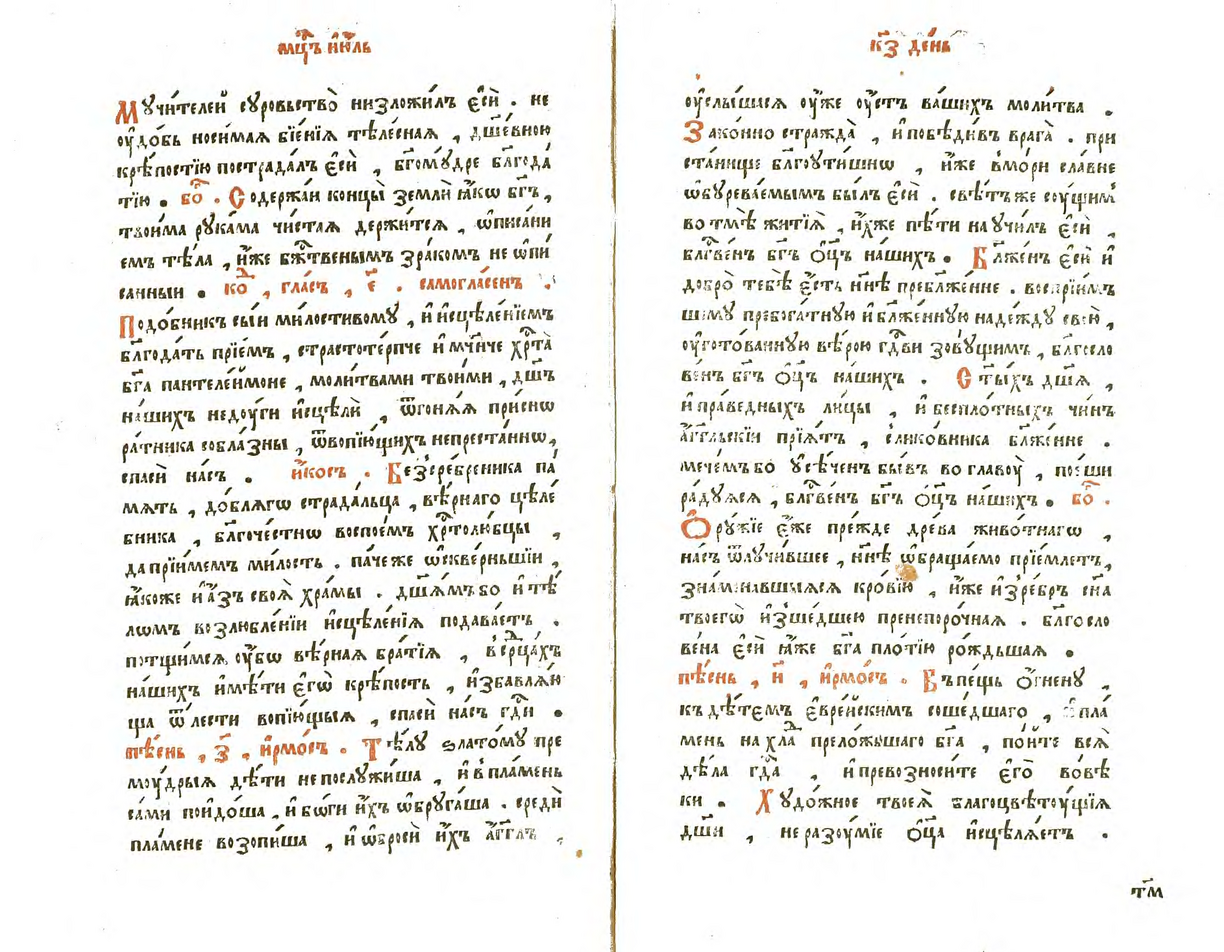 мц҃ъ и҆ю́ль
Мꙋчи́телей сꙋро́вьство̀ низложи́лъ є҆сѝ . не
оу҆до́бь носи́маꙗ бїе́нїꙗ тѣле́снаꙗ , дш҃е́вною
крѣ́постїю пострада́лъ є҆сѝ , бг҃омꙋ́дре блг҃ода́
тїю . бо҃ . Содержа́й концы̀ землѝ ꙗ҆́кѡ бг҃ъ ,
твои́ма рꙋка́ма чи́стаꙗ держи́тсѧ , ѡ҆писа́ни
емъ тѣ́ла , и҆́же бж҃твеннымъ зра́комъ не ѡ҆пи
са́нный . ко҃ , гла́съ , є҃ . самогла́сенъ .
Подо́бникъ сы́й ми́лостивомꙋ , и҆ и҆сцѣле́нїемъ
блг҃ода́ть прїе́мъ , страстоте́рпче и҆ мч҃ниче хрⷭ҇та̀
бг҃а пантелеи́моне , моли́твами твои́ми , дш҃ъ
на́шихъ недꙋ́ги и҆сцѣлѝ , ѿгонѧ́ѧ при́снѡ
ра́тника собла́зны , ѿвопїю́щихъ непреста́ннѡ ,
спасѝ на́съ . и҆́косъ . Безсре́бреника па́
мѧть , до́блѧгѡ страда́льца , вѣ́рнаго цѣле́
бника , блг҃оче́стнѡ воспои́мъ хрⷭ҇толю́бцы ,
да прїи́мемъ ми́лость . па́че же ѡ҆скве́рньшїи ,
ꙗ҆́коже и҆ а҆́зъ своѧ̀ хра́мы . дш҃а́мъ бо и҆ тѣ
лѡ́мъ возлюбле́нїи и҆сцѣле́нїѧ подава́етъ .
потщи́мсѧ оу҆́бѡ вѣ́рнаѧ бра́тїѧ , в се́рцахъ
на́шихъ и҆мѣ́ти є҆гѡ̀ крѣ́пость , и҆збавлѧ́ю
ща ѿ ле́сти вопїю́щыѧ , спасѝ на́съ гд҃и .
пѣ́снь , з҃ , і҆рмо́съ . Тѣ́лꙋ златомꙋ̀ пре
моу́дрыѧ дѣ́ти не послꙋжи́ша , и҆ в пла́мень
са́ми поидо́ша , и҆ бо́ги и҆́хъ ѡ҆брꙋга́ша . средѝ
пла́мене возопи́ша , и҆ ѡ҆росѝ и҆́хъ а҆́гг҃лъ ,
к҃з де́нь
оу҆слы́шасѧ оу҆же оу҆́стъ ва́шихъ моли́тва .
Зако́нно стражда̀ , и҆ побѣди́въ врага̀ . при
ста́нище блг҃оути́шнѡ , и҆́же в мо́ри сла́вне
ѡ҆бꙋрева́емымъ бы́лъ є҆сѝ . свѣ́тъ же соу́щимъ
во тмѣ̀ житїѧ̀ , и҆́хже пѣ́ти наꙋчи́лъ є҆сѝ ,
блг҃ве́нъ бг҃ъ ѻ҆ц҃ъ на́шихъ . Блаже́нъ є҆сѝ и҆
добро̀ тебѣ̀ є҆́сть нн҃ѣ пребл҃же́нне . воспрїи́мъ
шемꙋ пребога́тꙋю и҆ бл҃же́ннꙋю наде́ждꙋ свою̀ ,
оу҆гото́ваннꙋю вѣ́рою гд҃ви зовꙋ́щимъ , блг҃осло
ве́нъ бг҃ъ ѻ҆ц҃ъ на́шихъ . Ст҃ы́хъ дш҃а ,
и҆ пра́ведныхъ ли́цы , и҆ беспло́тныхъ чи́нъ
а҆́гг҃льскїи прїѧ́тъ , сликовника бл҃же́нне .
мече́мъ бо усѣче́нъ бы́въ во главоу̀ , пое́ши
ра́дꙋѧсѧ , блг҃ве́нъ бг҃ъ ѻ҆ц҃ъ на́шихъ . бо҃ .
Ѻ҆рꙋ́жїе є҆́же пре́жде дре́ва живо́тнагѡ ,
на́съ ѿлꙋчи́вшее , нн҃ѣ ѡ҆браща́емо прїе́млетъ ,
зна́менавшыѧсѧ кро́вїю , и҆́же и҆з ре́бръ сн҃а
твоегѡ̀ и҆зше́дшею пренепоро́чнаѧ . блг҃осло
ве́на є҆сѝ ꙗ҆́же бг҃а пло́тїю ро́ждьшаѧ .
пѣ́снь , и҃ , і҆рмо́съ . Въ пе́щь ѻ҆́гненꙋ ,
къ дѣ́темъ є҆вре́йскимъ соше́дшаго , и҆ пла́
мень на хла́ преложьшаго бг҃а , по́йте всѧ̀
дѣ́ла гд҃а , и҆ превозноси́те є҆го̀ во вѣ́
ки . Хꙋдо́жное твоеѧ̀ благоцвѣтоу́щїѧ
дш҃и , неразоу́мїе ѻ҆ц҃а и҆сцѣлѧ́етъ .
тм҃